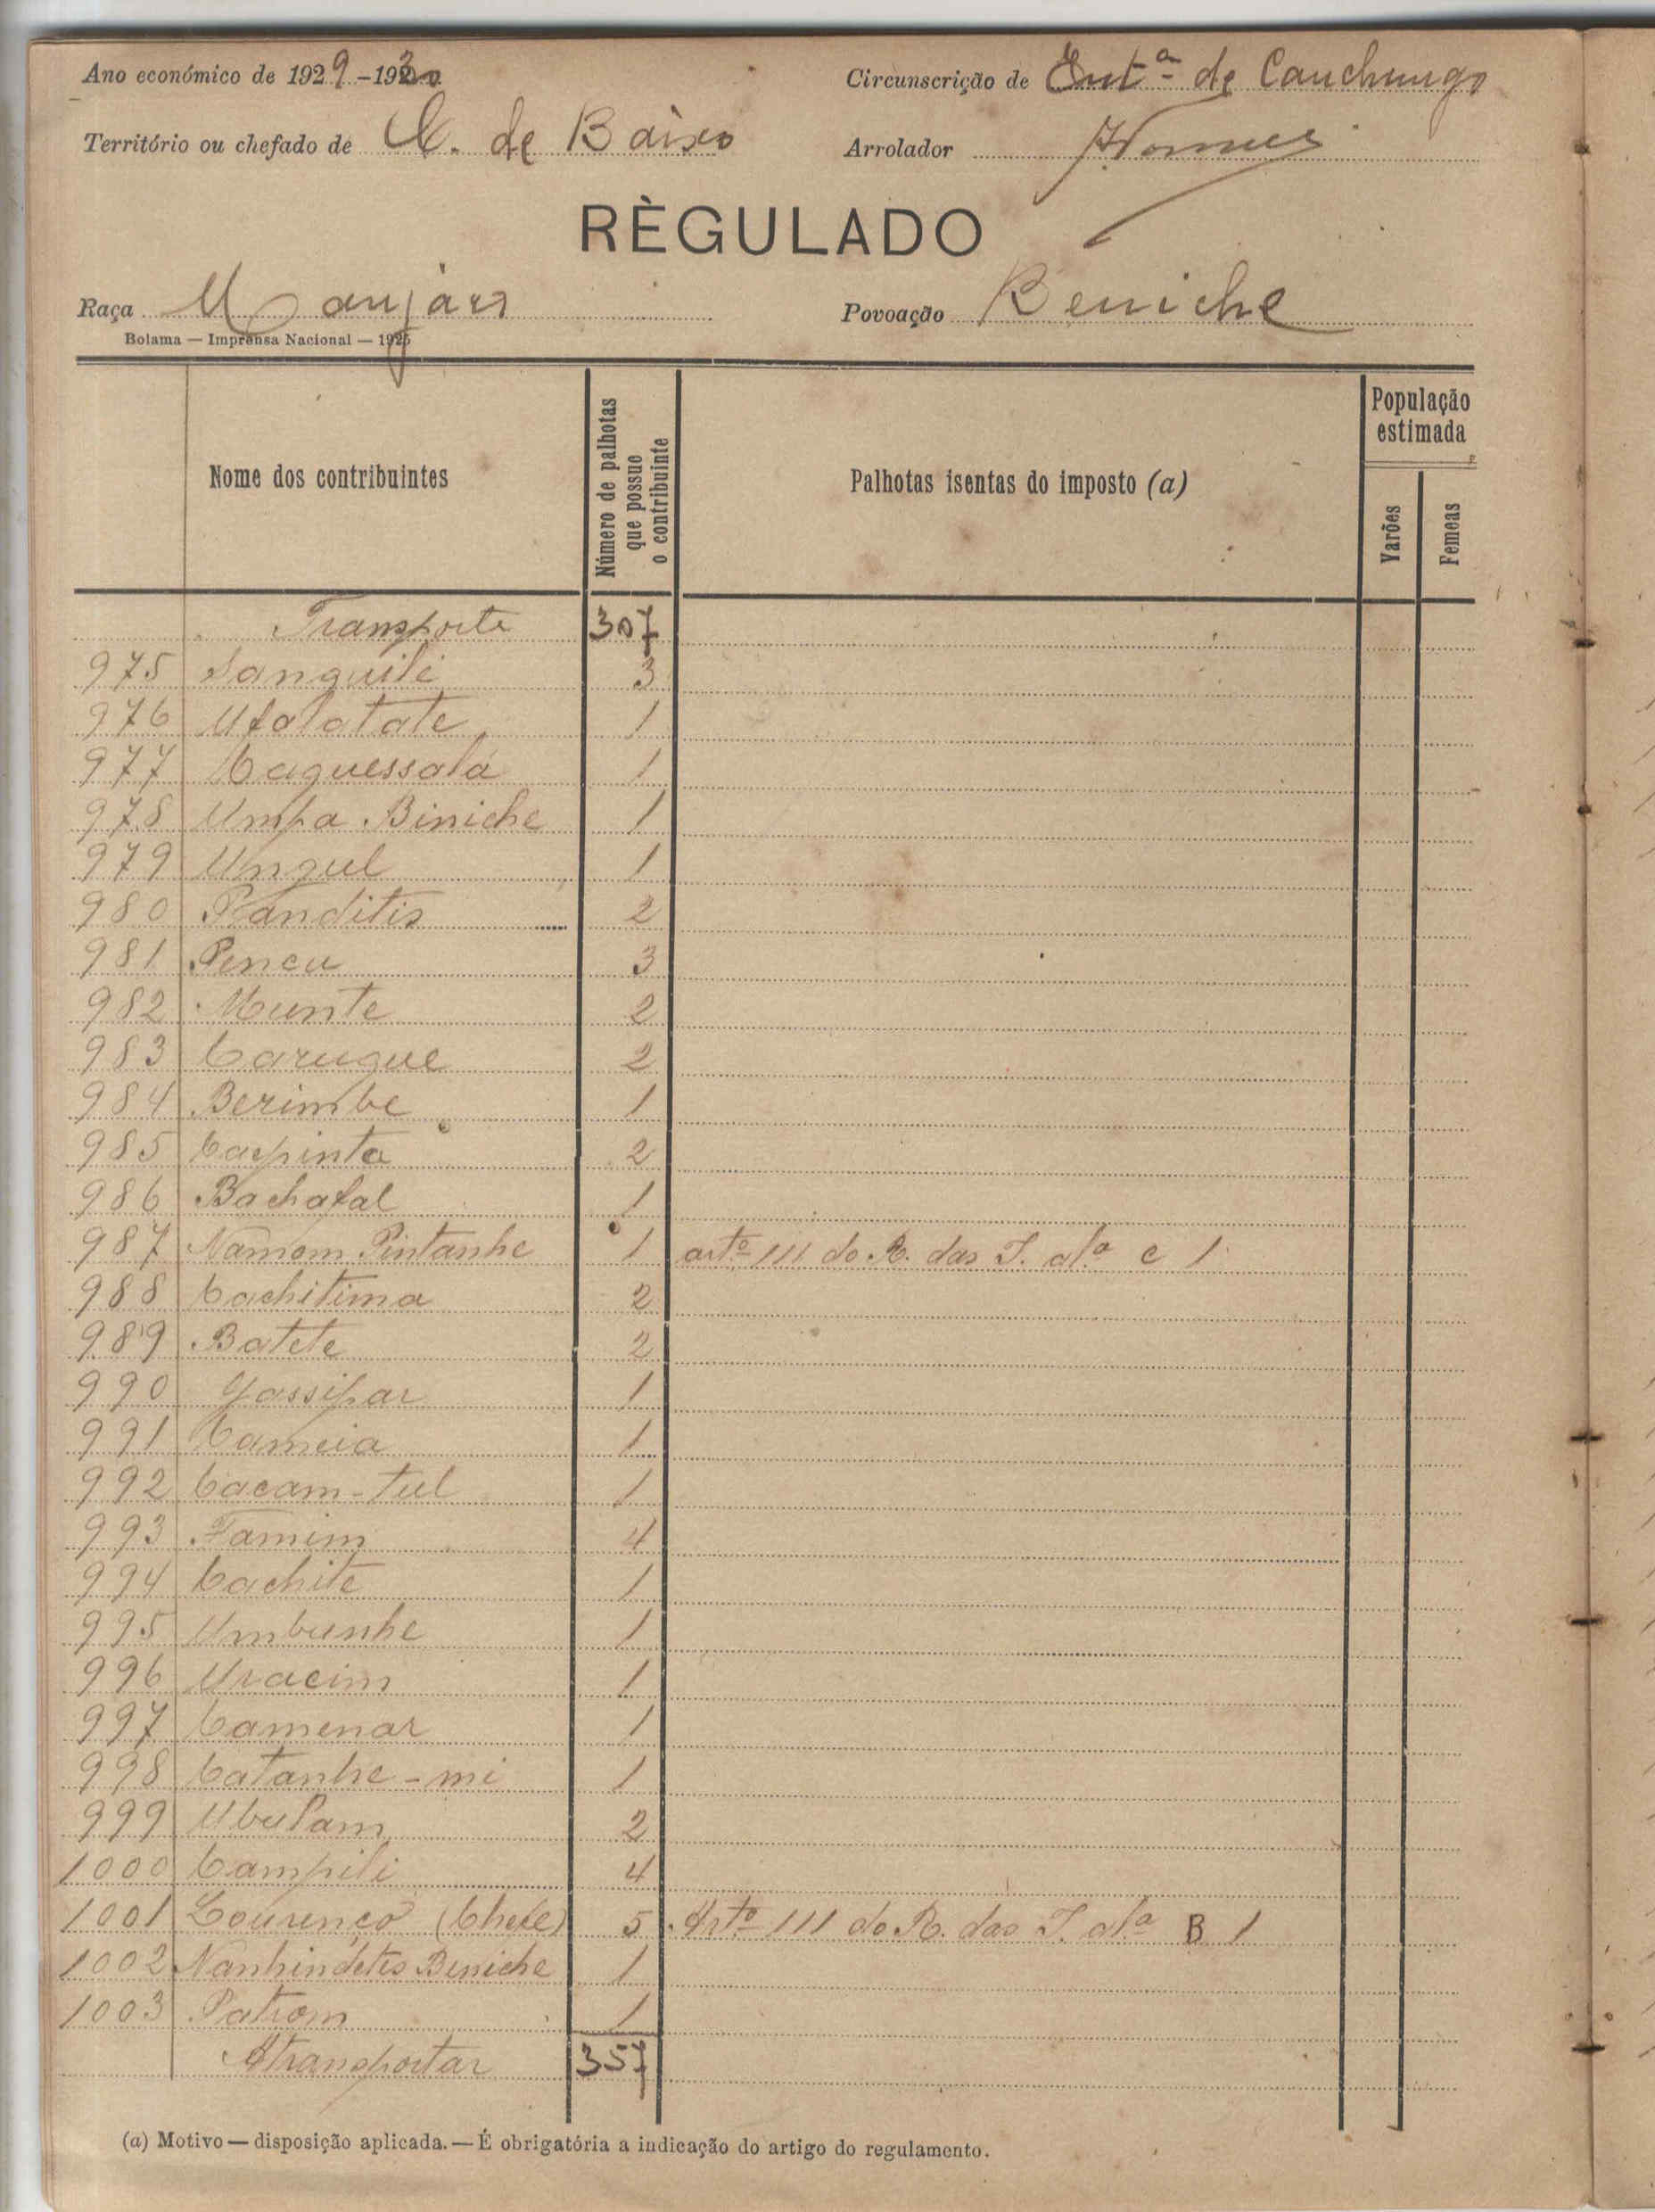 Ano económico de 1929-1930 Circunscrição de Cauchungo
Território ou chefado de C. de Baixo Arrolador
RÈGULADO
Raça Manjaco Povoação Beniche
Bolama — Imprensa Nacional — 1925
Nome dos contribuintes Número de palhotas que possue o contribuinte Palhotas isentas do imposto (a) População estimada
Varões Femeas
Transporte 307
975 Sanguili 3
976 Ufalatate 1
977 Caquessalá 1
978 Umpa Biniche 1
979 Ungul 1
980 Panditis 2
981 Pencu 3
982 Munte 2
983 Caruque 2
984 Berimbe 1
985 Capinta 2
986 Bachafal 1
987 Namom Pintanhe 1 artº 111 do R. das I. alª c 1
988 Cachitima 2
989 Batete 2
990 Gassipar 1
991 Cameia 1
992 Cacam-tul 1
993 Famim 4
994 Cachite 1
995 Umbunhe 1
996 Uracim 1
997 Camenar 1
998 Catanhe-mi 1
999 Ubulam 2
1000 Campili 4
1001 Lourenço (Chefe) 5 Artº 111 do R. das I. alª B 1
1002 Nanhindetes Beniche 1
1003 Patrom 1
Atransportar 357
(a) Motivo — disposição aplicada. — É obrigatória a indicação do artigo do regulamento.